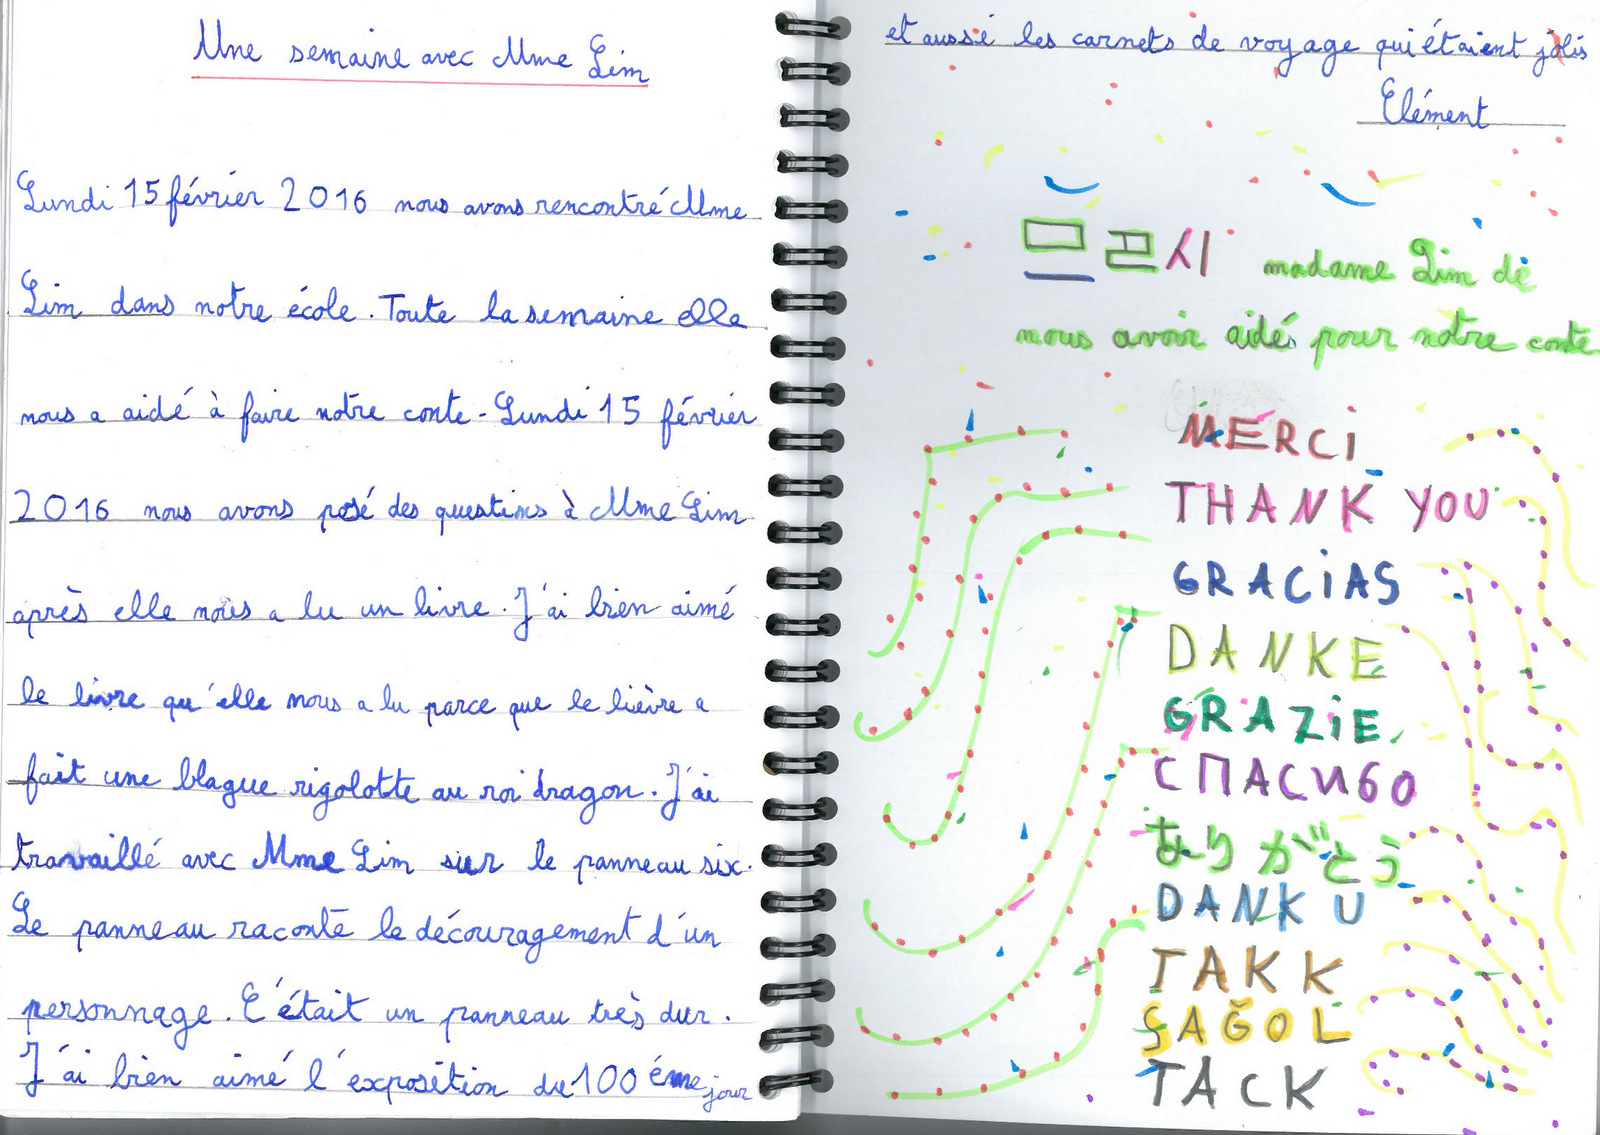 Une semaine avec Mme Lim
Lundi 15 février 2016 nous avons rencontré Mme
Lim dans notre école. Toute la semaine elle
nous a aidé à faire notre conte. Lundi 15 février
2016 nous avons posé des questions à Mme Lim
après elle nous a lu un livre. J'ai bien aimé
le livre qu'elle nous a lu parce que le lièvre a
fait une blague rigolotte au roi dragon. J'ai
travaillé avec Mme Lim sur le panneau six.
Le panneau raconte le découragement d'un
personnage. C'était un panneau très dur.
J'ai bien aimé l'exposition du 100 éme jour
et aussi les carnets de voyage qui étaient jolis
Clément
므끈시 madame Lim de
nous avoir aidés pour notre conte
MERCi
THANK YOU
GRACiAS
DANKE
GRAZiE.
СПАСИБО
ありがとう
DANK U
TAKK
SAĞOL
TACK